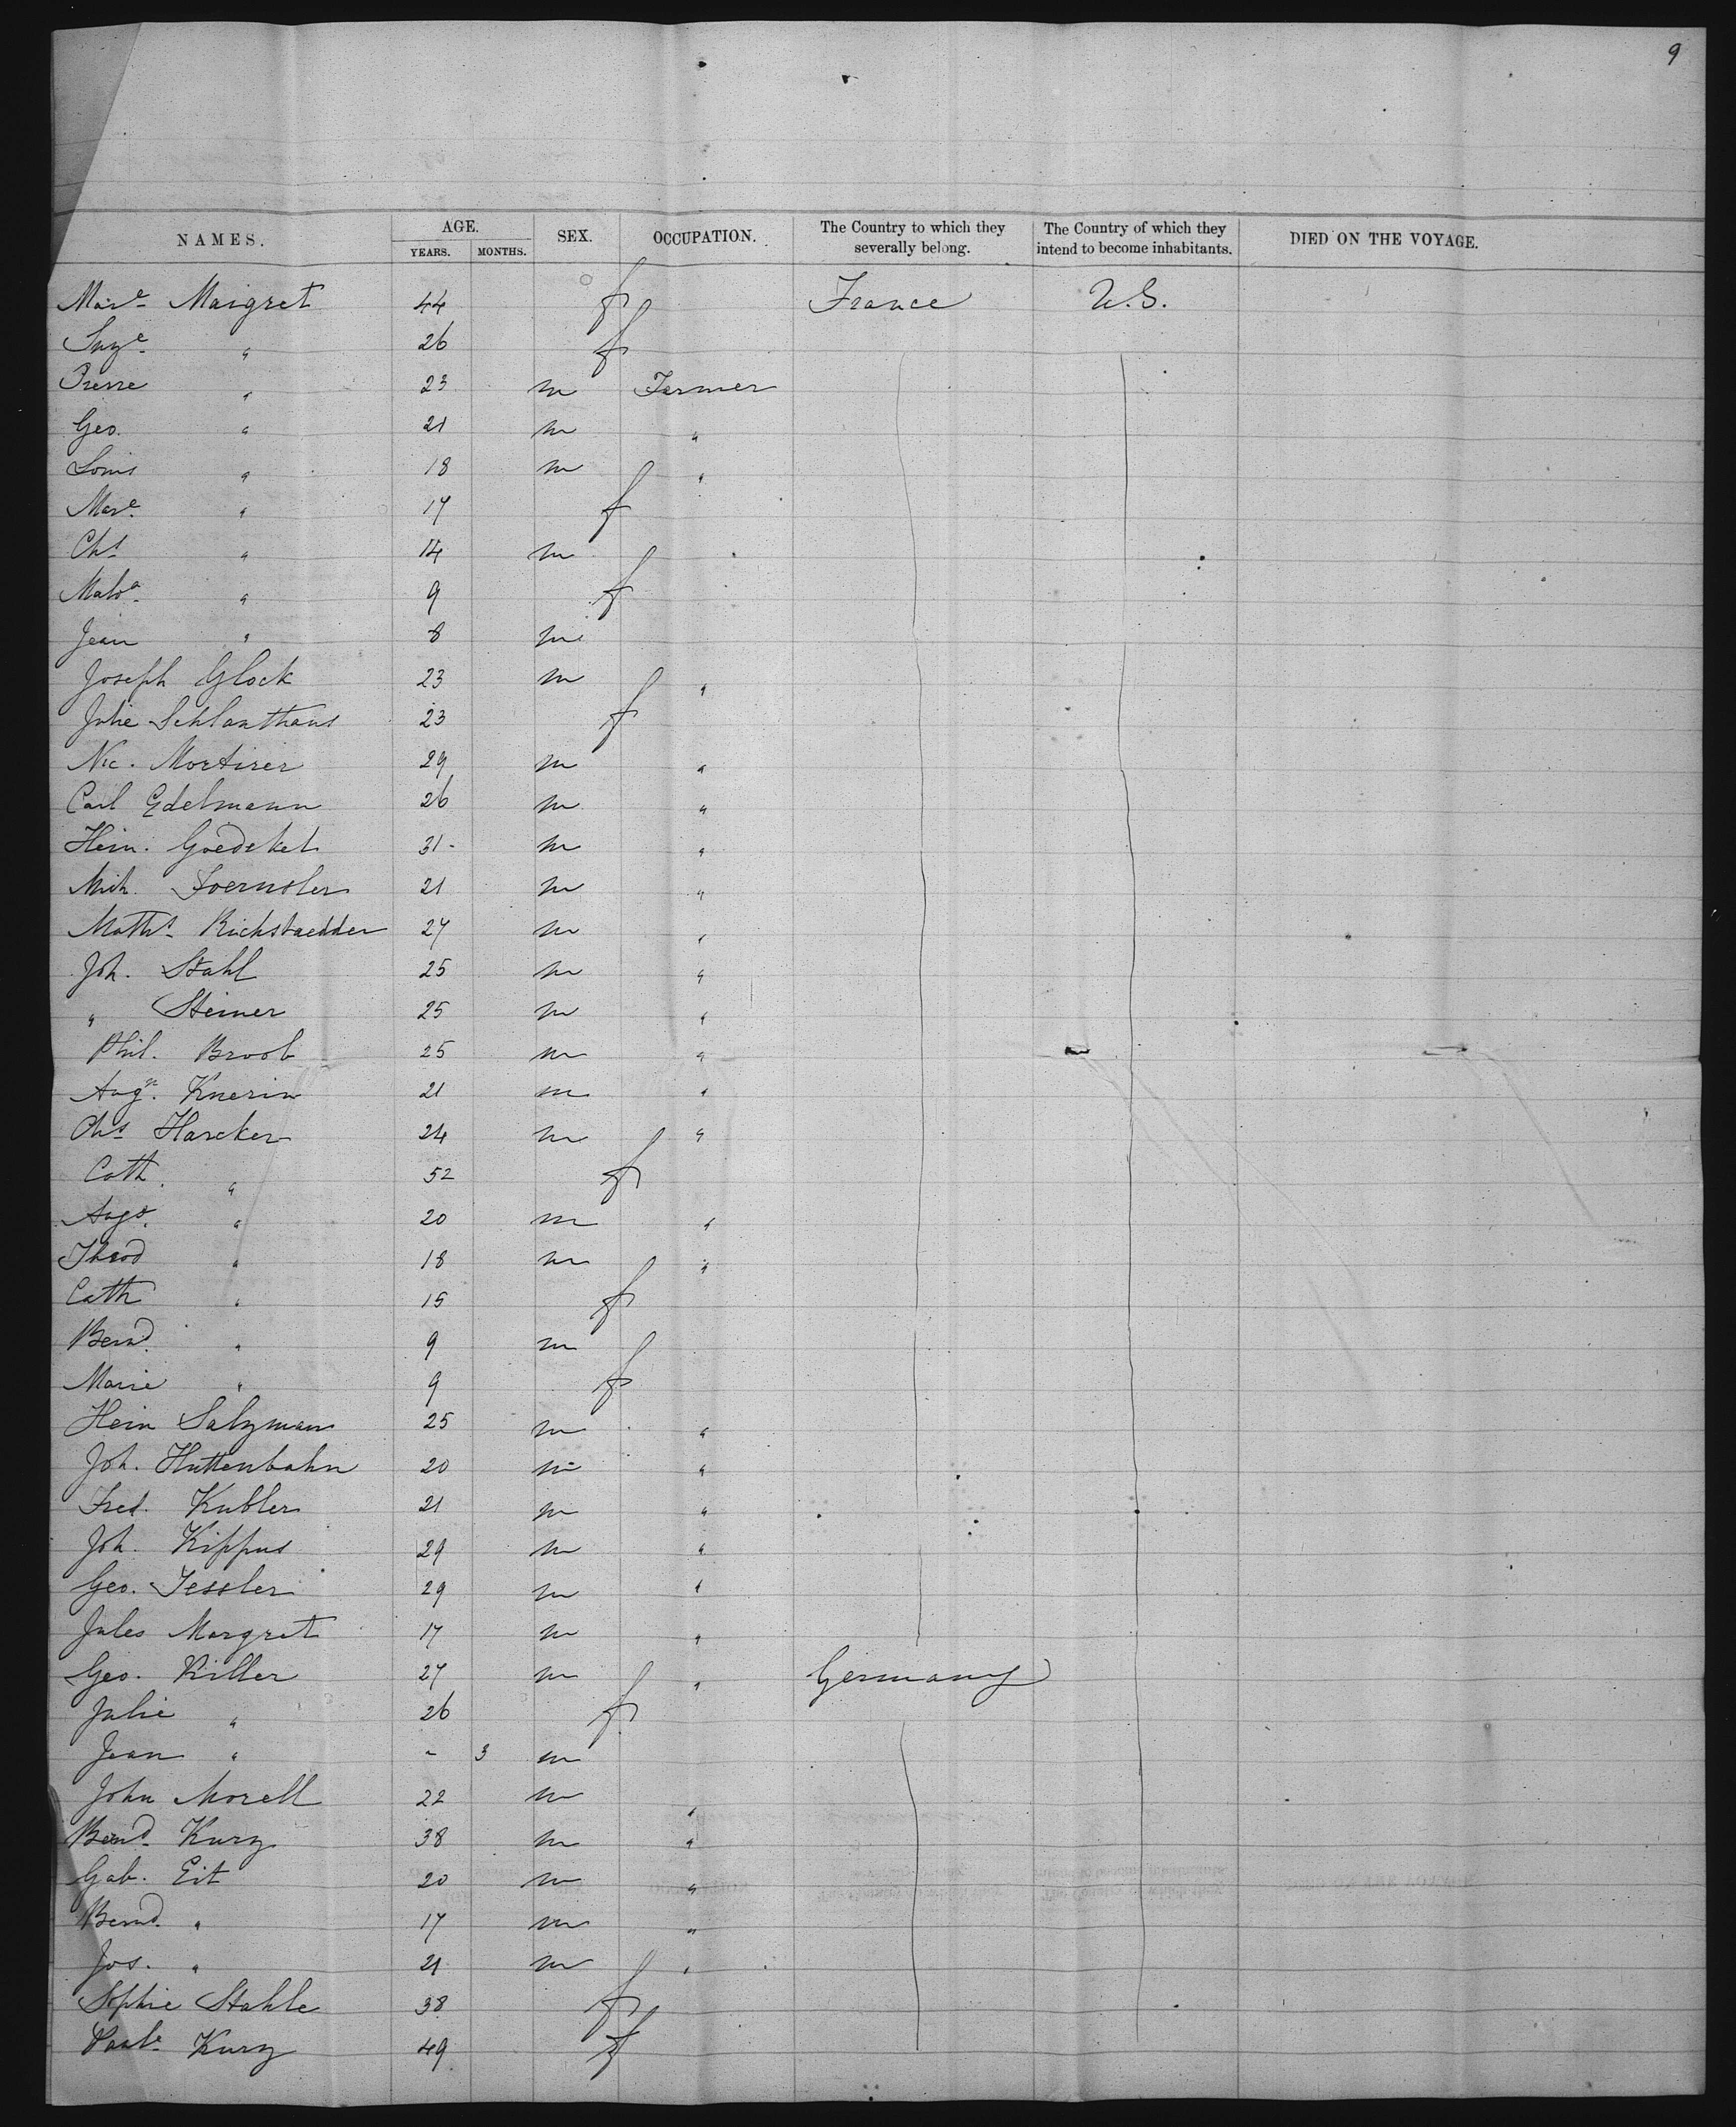 9
NAMES. AGE. YEARS. MONTHS. SEX. OCCUPATION. The Country to which they severally belong. The Country of which they intend to become inhabitants. DIED ON THE VOYAGE.
Mare Maigret 44 f France U.S.
Suze " 26 f
Pierre " 23 m Farmer
Geo. " 21 m "
Louis " 18 m "
Mare " 17 f
Chs " 14 m
" 9 f
Jean " 8 m
Joseph Glock 23 m "
Julie Schlanthaus 23 f
Nic. Mortirer 29 m "
Carl Edelmann 26 m "
Hein. Goedekel 31 - m "
Mich. 21 m "
Maths Richstaedder 27 m "
Joh. Stahl 25 m "
" Steiner 25 m "
Phil. Broob 25 m "
Augn. Knerin 21 m "
Chs Harcker 24 m "
Cath. " 52 f
Augt. " 20 m "
Theod " 18 m "
Cath " 15 f
Bernd. " 9 m
Marie " 9 f
Hein Salzman 25 m "
Joh. Huttenbahn 20 m "
Fred. Kubler 21 m "
Joh. Kippus 29 m "
Geo. Tessler 29 m "
Jules Margret 17 m "
Geo. Killer 27 m " Germany
Julie " 26 f
Jean " - 3 m
John Morell 22 m "
Bernd. Kurz 38 m "
Gab. Eit 20 m "
Bernd. " 17 m "
Jos. " 21 m "
Sophie Stahle 38 f
Kurz 49 f